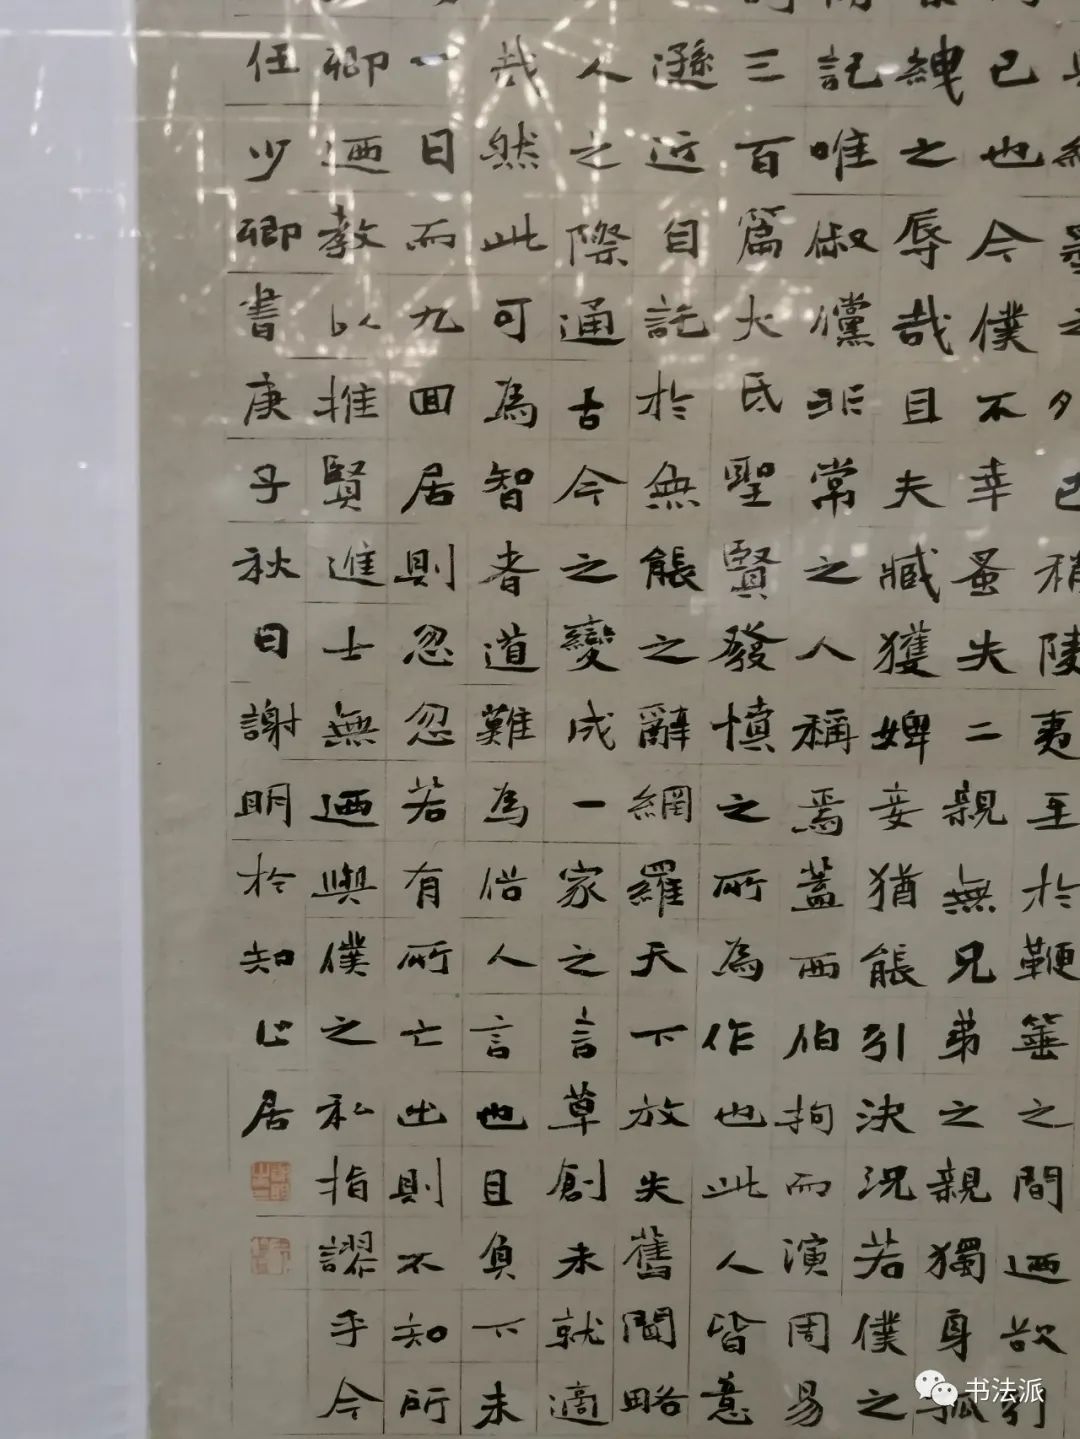 之外已稍陵夷至於鞭箠之間迺欲引
已也今僕不幸蚤失二親無兄弟之親獨身孤
紲之辱哉且夫臧獲婢妾猶能引決況若僕之
記唯俶儻非常之人稱焉蓋西伯拘而演周易
三百篇大氐聖賢發憤之所為作也此人皆意
遜近自託於無能之辭網羅天下放失舊聞略
人之際通古今之變成一家之言草創未就適
哉然此可為智者道難為俗人言也且負下未
一日而九回居則忽忽若有所亡出則不知所
卿迺教以推賢進士無迺與僕之私指謬乎今
任少卿書庚子秋日謝明於知止居
书法派